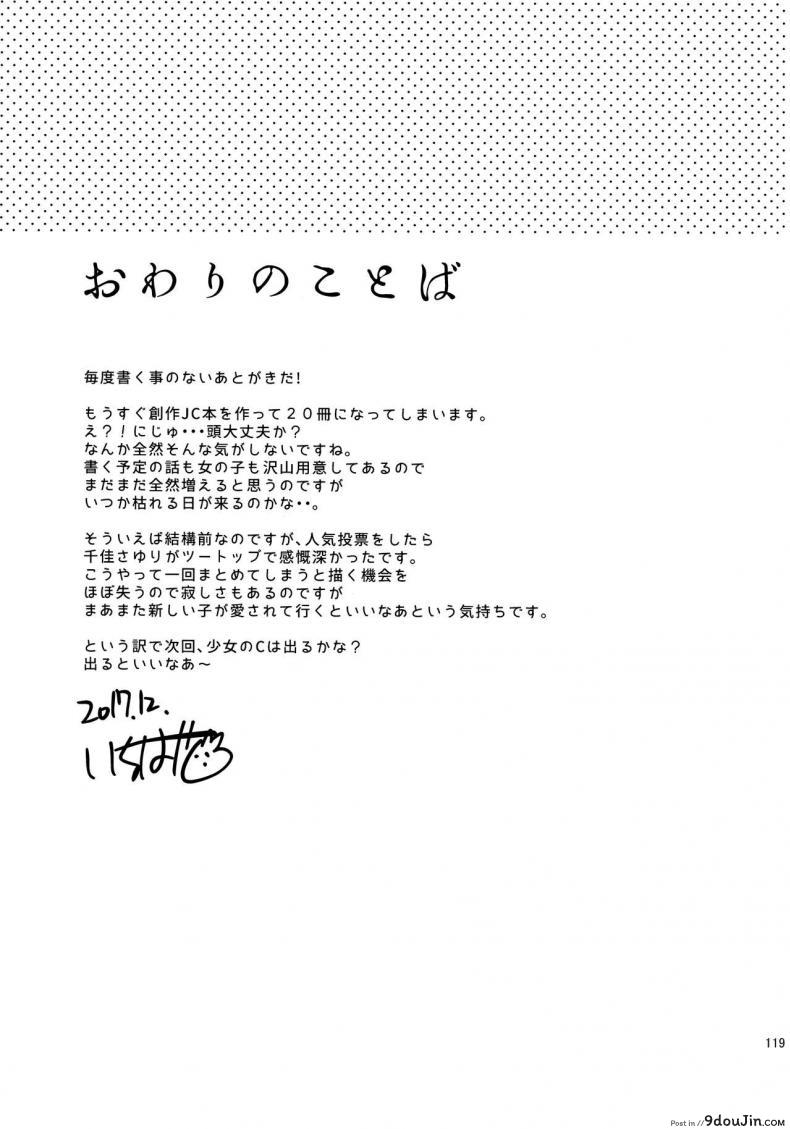 おわりのことば
毎度書く事のないあとがきだ!
もうすぐ創作JC本を作って20冊になってしまいます。
え?!にじゅ・・・頭大丈夫か?
なんか全然そんな気がしないですね。
書く予定の話も女の子も沢山用意してあるので
まだまだ全然増えると思うのですが
いつか枯れる日が来るのかな・・。
そういえば結構前なのですが、人気投票をしたら
千佳さゆりがツートップで感慨深かったです。
こうやって一回まとめてしまうと描く機会を
ほぼ失うので寂しさもあるのですが
まあまた新しい子が愛されて行くといいなあという気持ちです。
という訳で次回、少女のCは出るかな?
出るといいなあ~
2017.12.
119
Post in // 9douJin.com